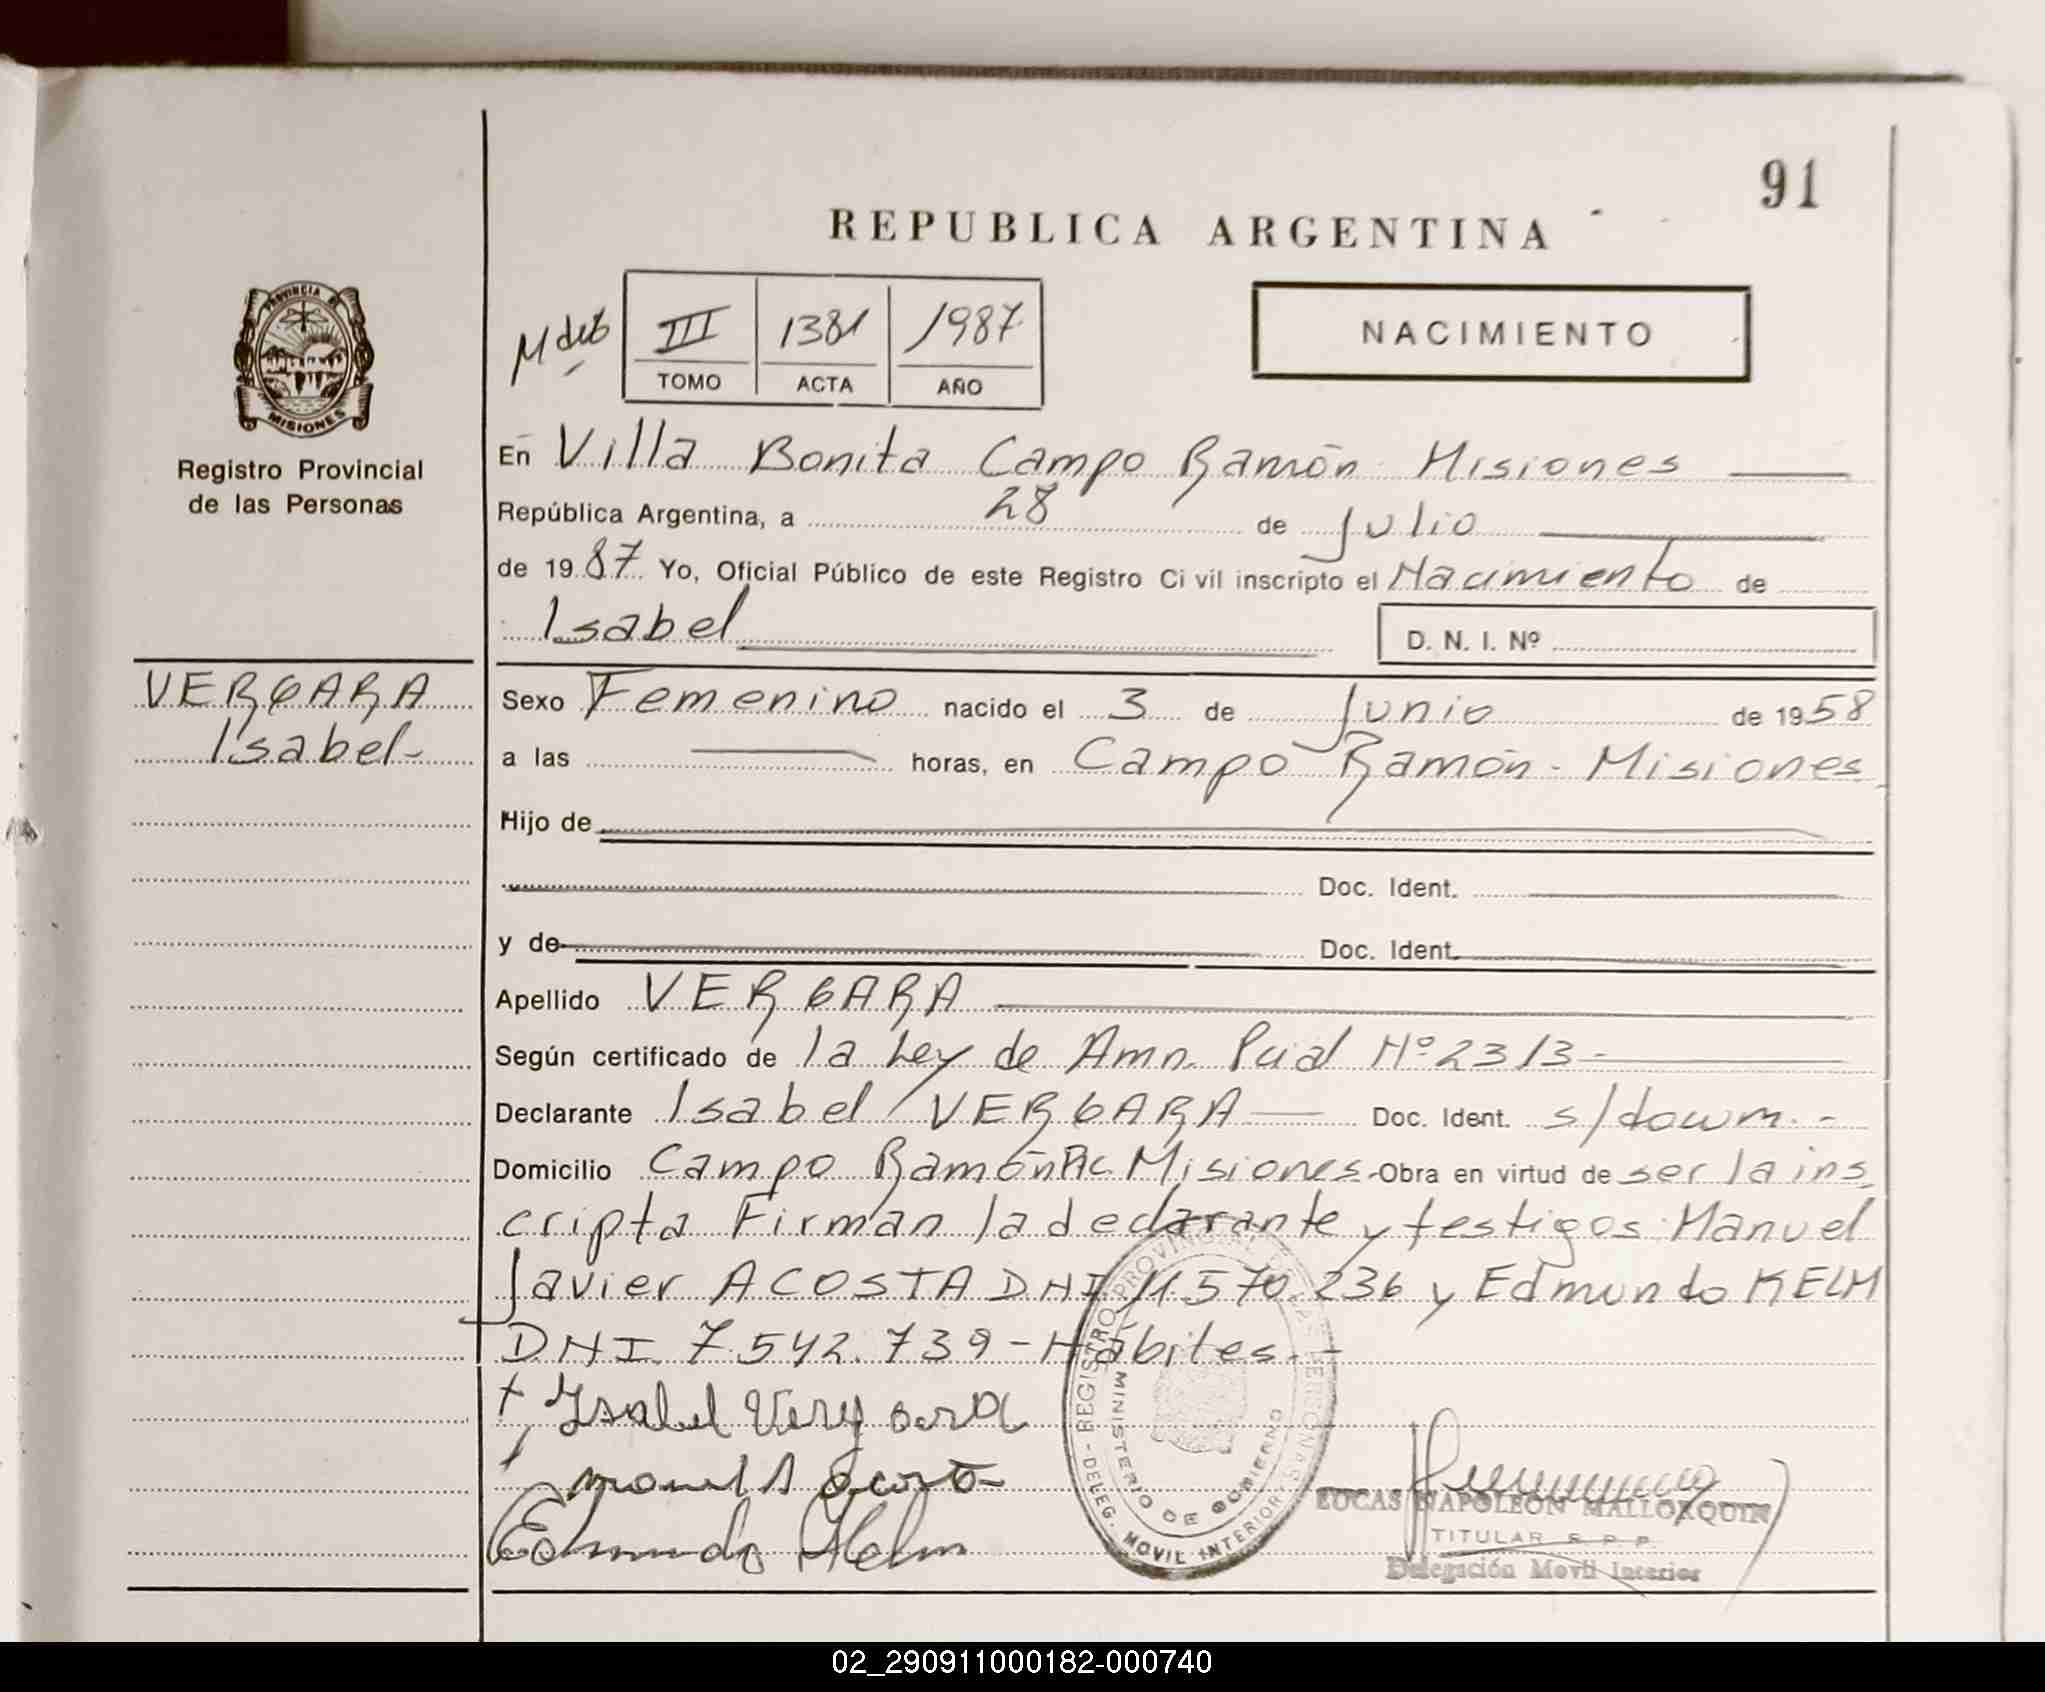 91
REPUBLICA ARGENTINA
PROVINCIA DE
MISIONES
Registro Provincial
de las Personas
III 1381 1987
TOMO ACTA AÑO
NACIMIENTO
En Villa Bonita Campo Ramón Misiones
República Argentina, a 28 de Julio
de 1987 Yo, Oficial Público de este Registro Civil inscripto el Nacimiento de
Isabel D. N. I. Nº
VERGARA
Isabel-
Sexo Femenino nacido el 3 de Junio de 1958
a las horas, en Campo Ramón - Misiones
Hijo de
Doc. Ident.
y de Doc. Ident.
Apellido VERGARA
Según certificado de la Ley de Amn. Pcial Nº 2313-
Declarante Isabel VERGARA Doc. Ident. s/docum.-
Domicilio Campo Ramón Misiones- Obra en virtud de ser la ins
cripta Firman la declarante y testigos: Manuel
Javier ACOSTA DNI 11.570.236 y Edmundo KELM
DNI. 7.542.739 - Hábiles.-
Isabel Vergara
Manuel J Acosta
Edmundo Kelm
REGISTRO PROVINCIAL DE LAS PERSONAS
MINISTERIO DE GOBIERNO
DELEG. MOVIL INTERIOR
LUCAS NAPOLEON MALLORQUIN
TITULAR R. P. P.
Delegación Movil Interior
02_290911000182-000740